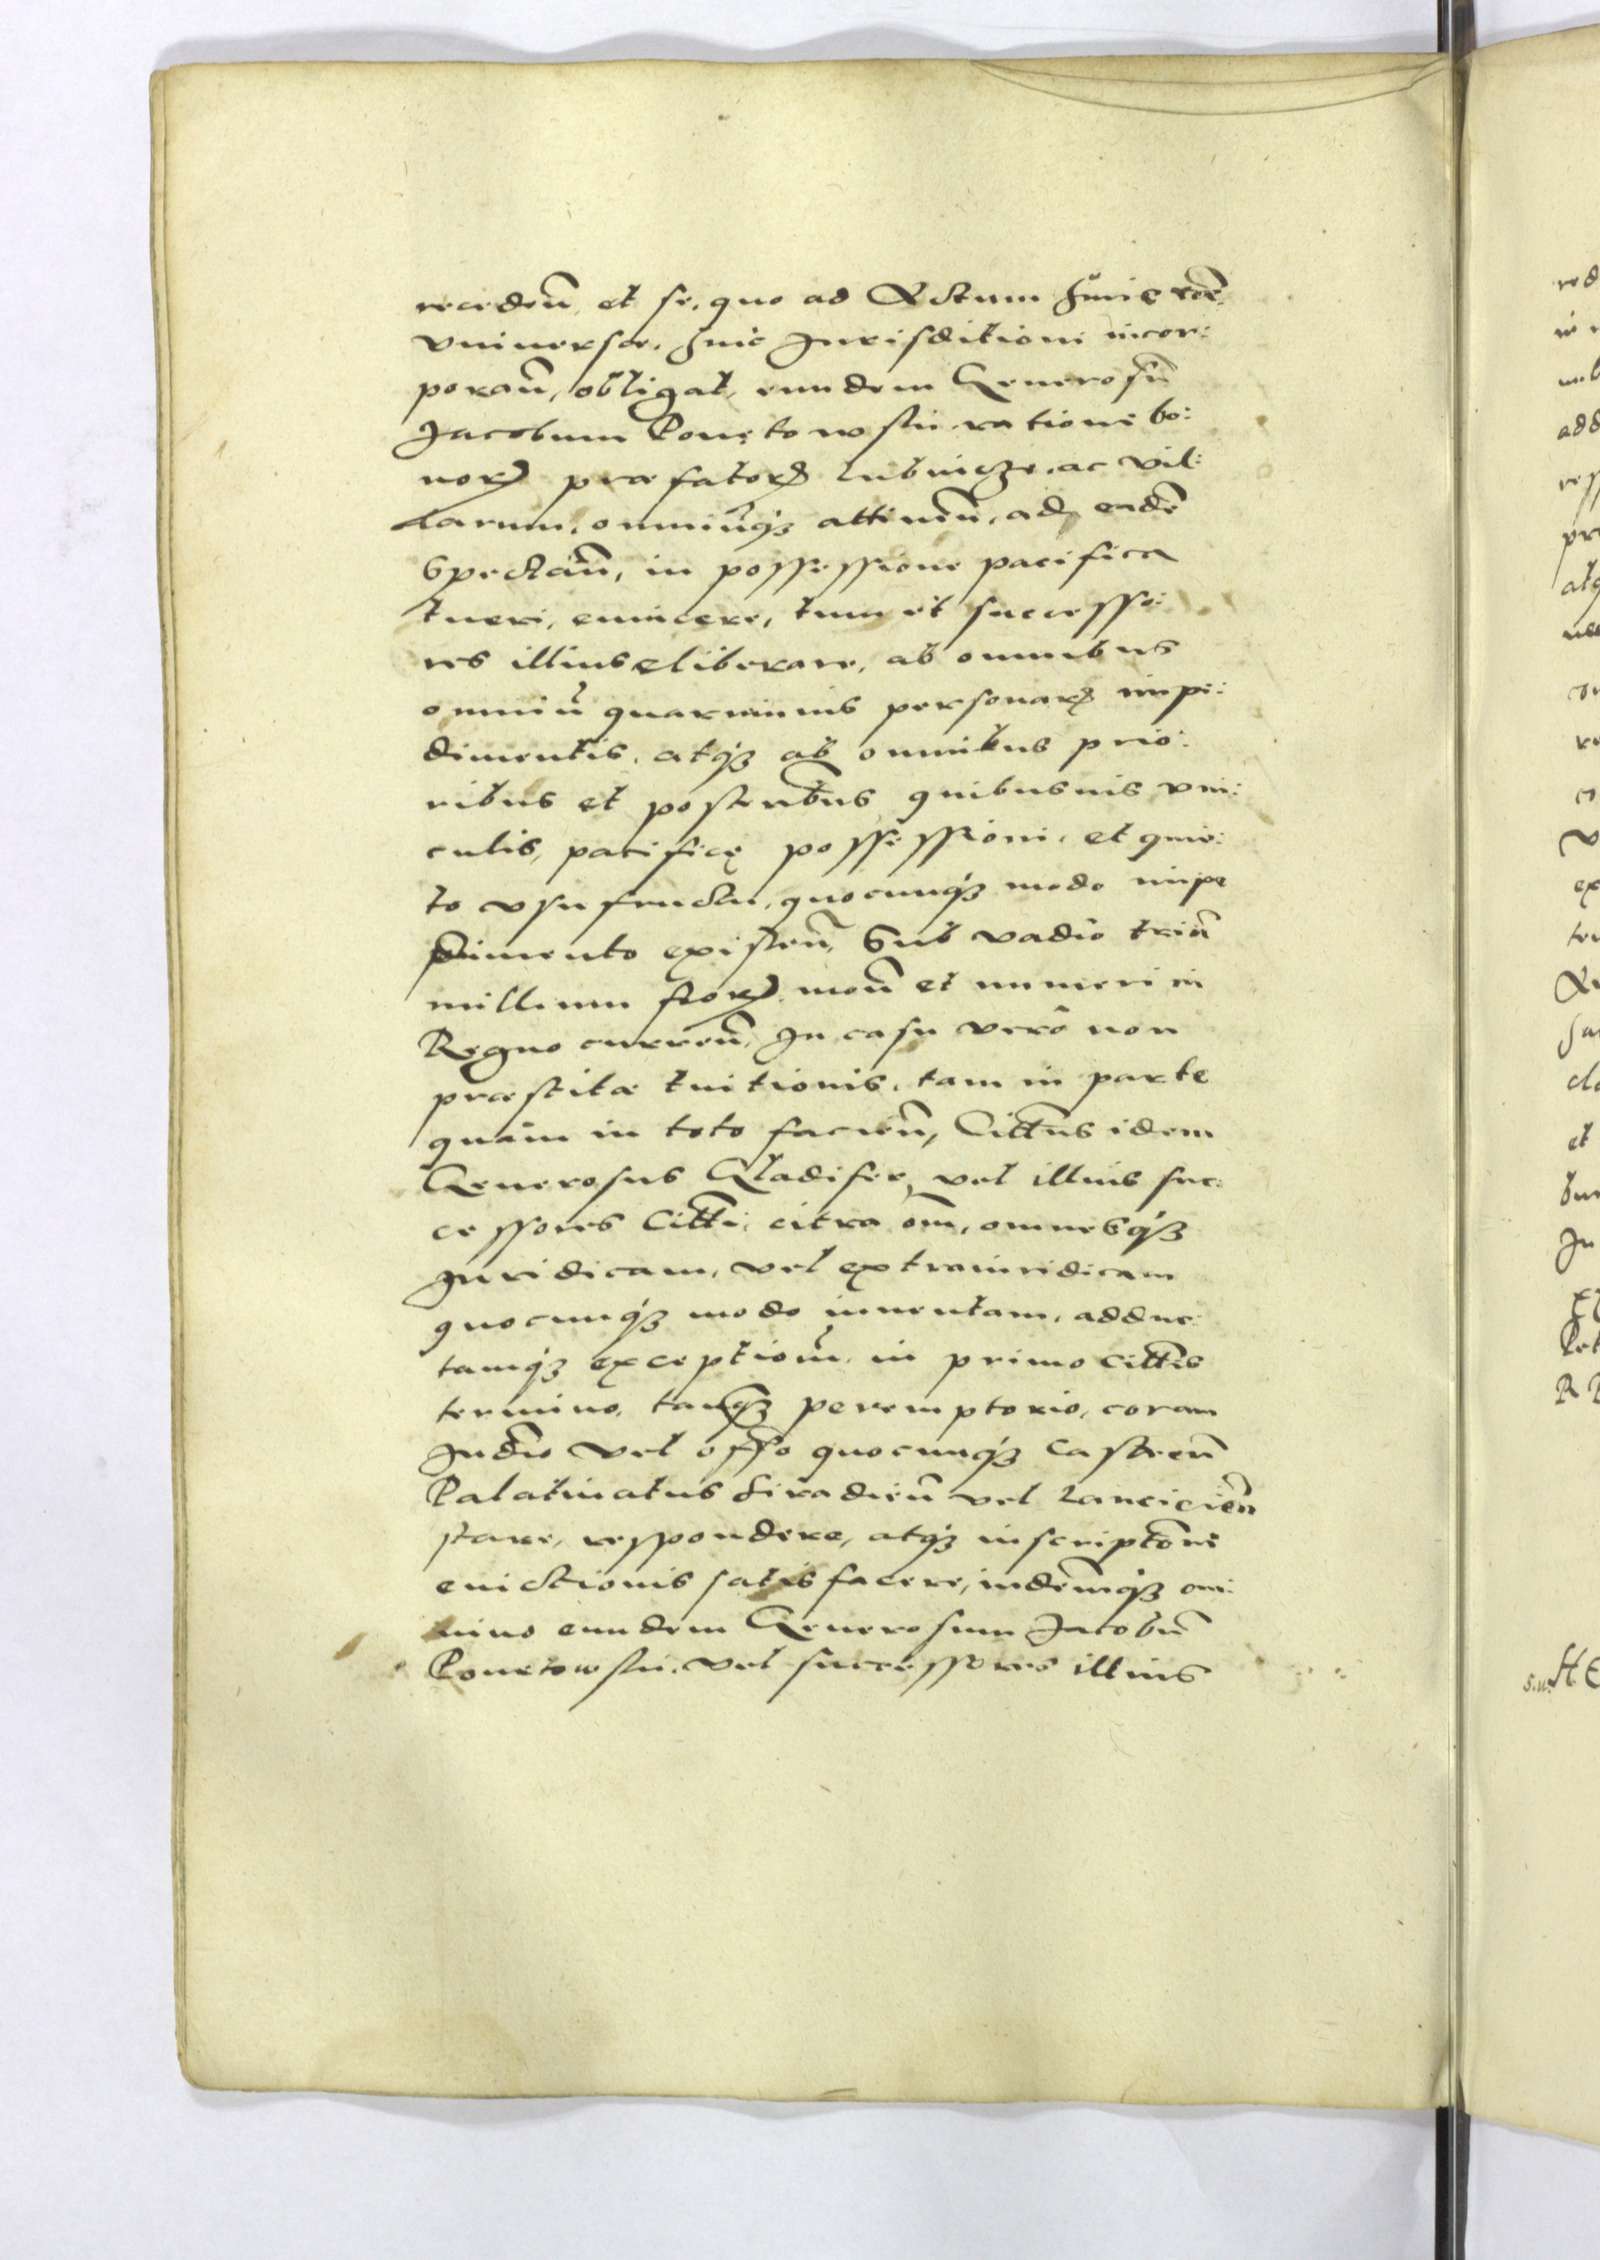 recedeñ, et se, quo ad Actum huic rōe
vniversæ, huic Jurisditioni incor:
porañ, obligat, eundem Generosũ
Jacobum Ponętowskii ratione bo:
norꝝ præfatorꝝ Lubnicze, ac vil:
larum, omniũqꝫ attineñ, ad eadē
Spectañ, in possessione pacifica
tueri, evincere, tum et successo:
res illius eliberare, ab omnibus
omniũ quarumvis personarꝝ impe:
dimentis, atqꝫ ab omnibus prio:
ribus et posterribus quibusvis vin:
culis, pacificę possessioni, et quie:
to vsufructu, quocunqꝫ modo impe
dimento existeñ, Sub vadio triũ
millium florꝝ moñ et numeri in
Regno curreñ, In casu verò non
præstitæ tuitionis, tam in parte
quàm in toto facieñ, Cittus idem
Generosus Gladifer, vel illius suc:
cessores Citti, citra om̃, omnesqꝫ
Juridicam, vel extraiuridicam
quocunqꝫ modo inventam, adduc:
tamqꝫ exceptioñ, in primo cittis
termino, tanqꝫ peremptorio, coram
Judio vel offo quocunqꝫ Castreñ
Palatinatus Siradieñ vel Lancicieñ
stare, respondere, atqꝫ inscriptioni
evictionis satisfacere, indemqꝫ om:
nino eundem Generosum Jacobũ
Ponetowskii, vel successores illius